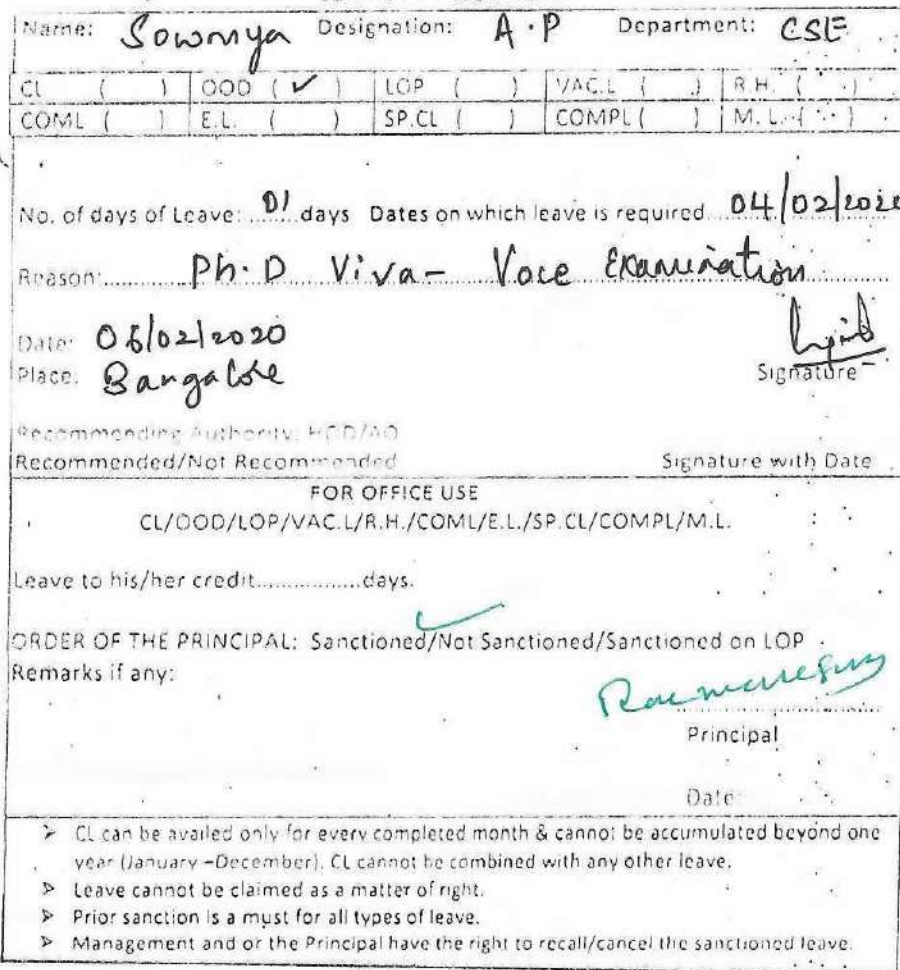 Name: Sowmya Designation: A.P Department: CSE
CL ( ) OOD ( ✓ ) LOP ( ) VAC.L ( ) R.H. ( )
COML ( ) E.L. ( ) SP.CL ( ) COMPL ( ) M.L. ( )
No. of days of Leave: 01 days Dates on which leave is required 04/02/2020
Reason: Ph.D Viva- Voce Examination
Date: 06/02/2020
Place: Bangalore
Signature
Recommending Authority: HOD/AO
Recommended/Not Recommended Signature with Date
FOR OFFICE USE
CL/OOD/LOP/VAC.L/R.H./COML/E.L./SP.CL/COMPL/M.L.
Leave to his/her credit................days.
ORDER OF THE PRINCIPAL: Sanctioned/Not Sanctioned/Sanctioned on LOP
Remarks if any:
Principal
Date:
➤ CL can be availed only for every completed month & cannot be accumulated beyond one
year (January –December). CL cannot be combined with any other leave.
➤ Leave cannot be claimed as a matter of right.
➤ Prior sanction is a must for all types of leave.
➤ Management and or the Principal have the right to recall/cancel the sanctioned leave.